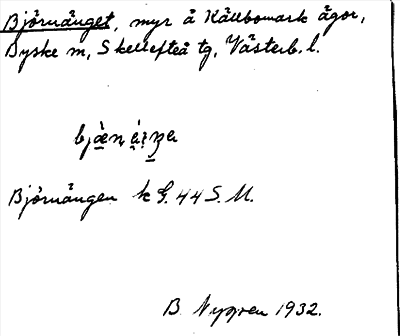 Björnänget, myr å Källbomark ägor,
Byske m, Skellefteå tg, Västerb. l.
Björnängen k G. 44 S. M.
B. Nygren 1932.